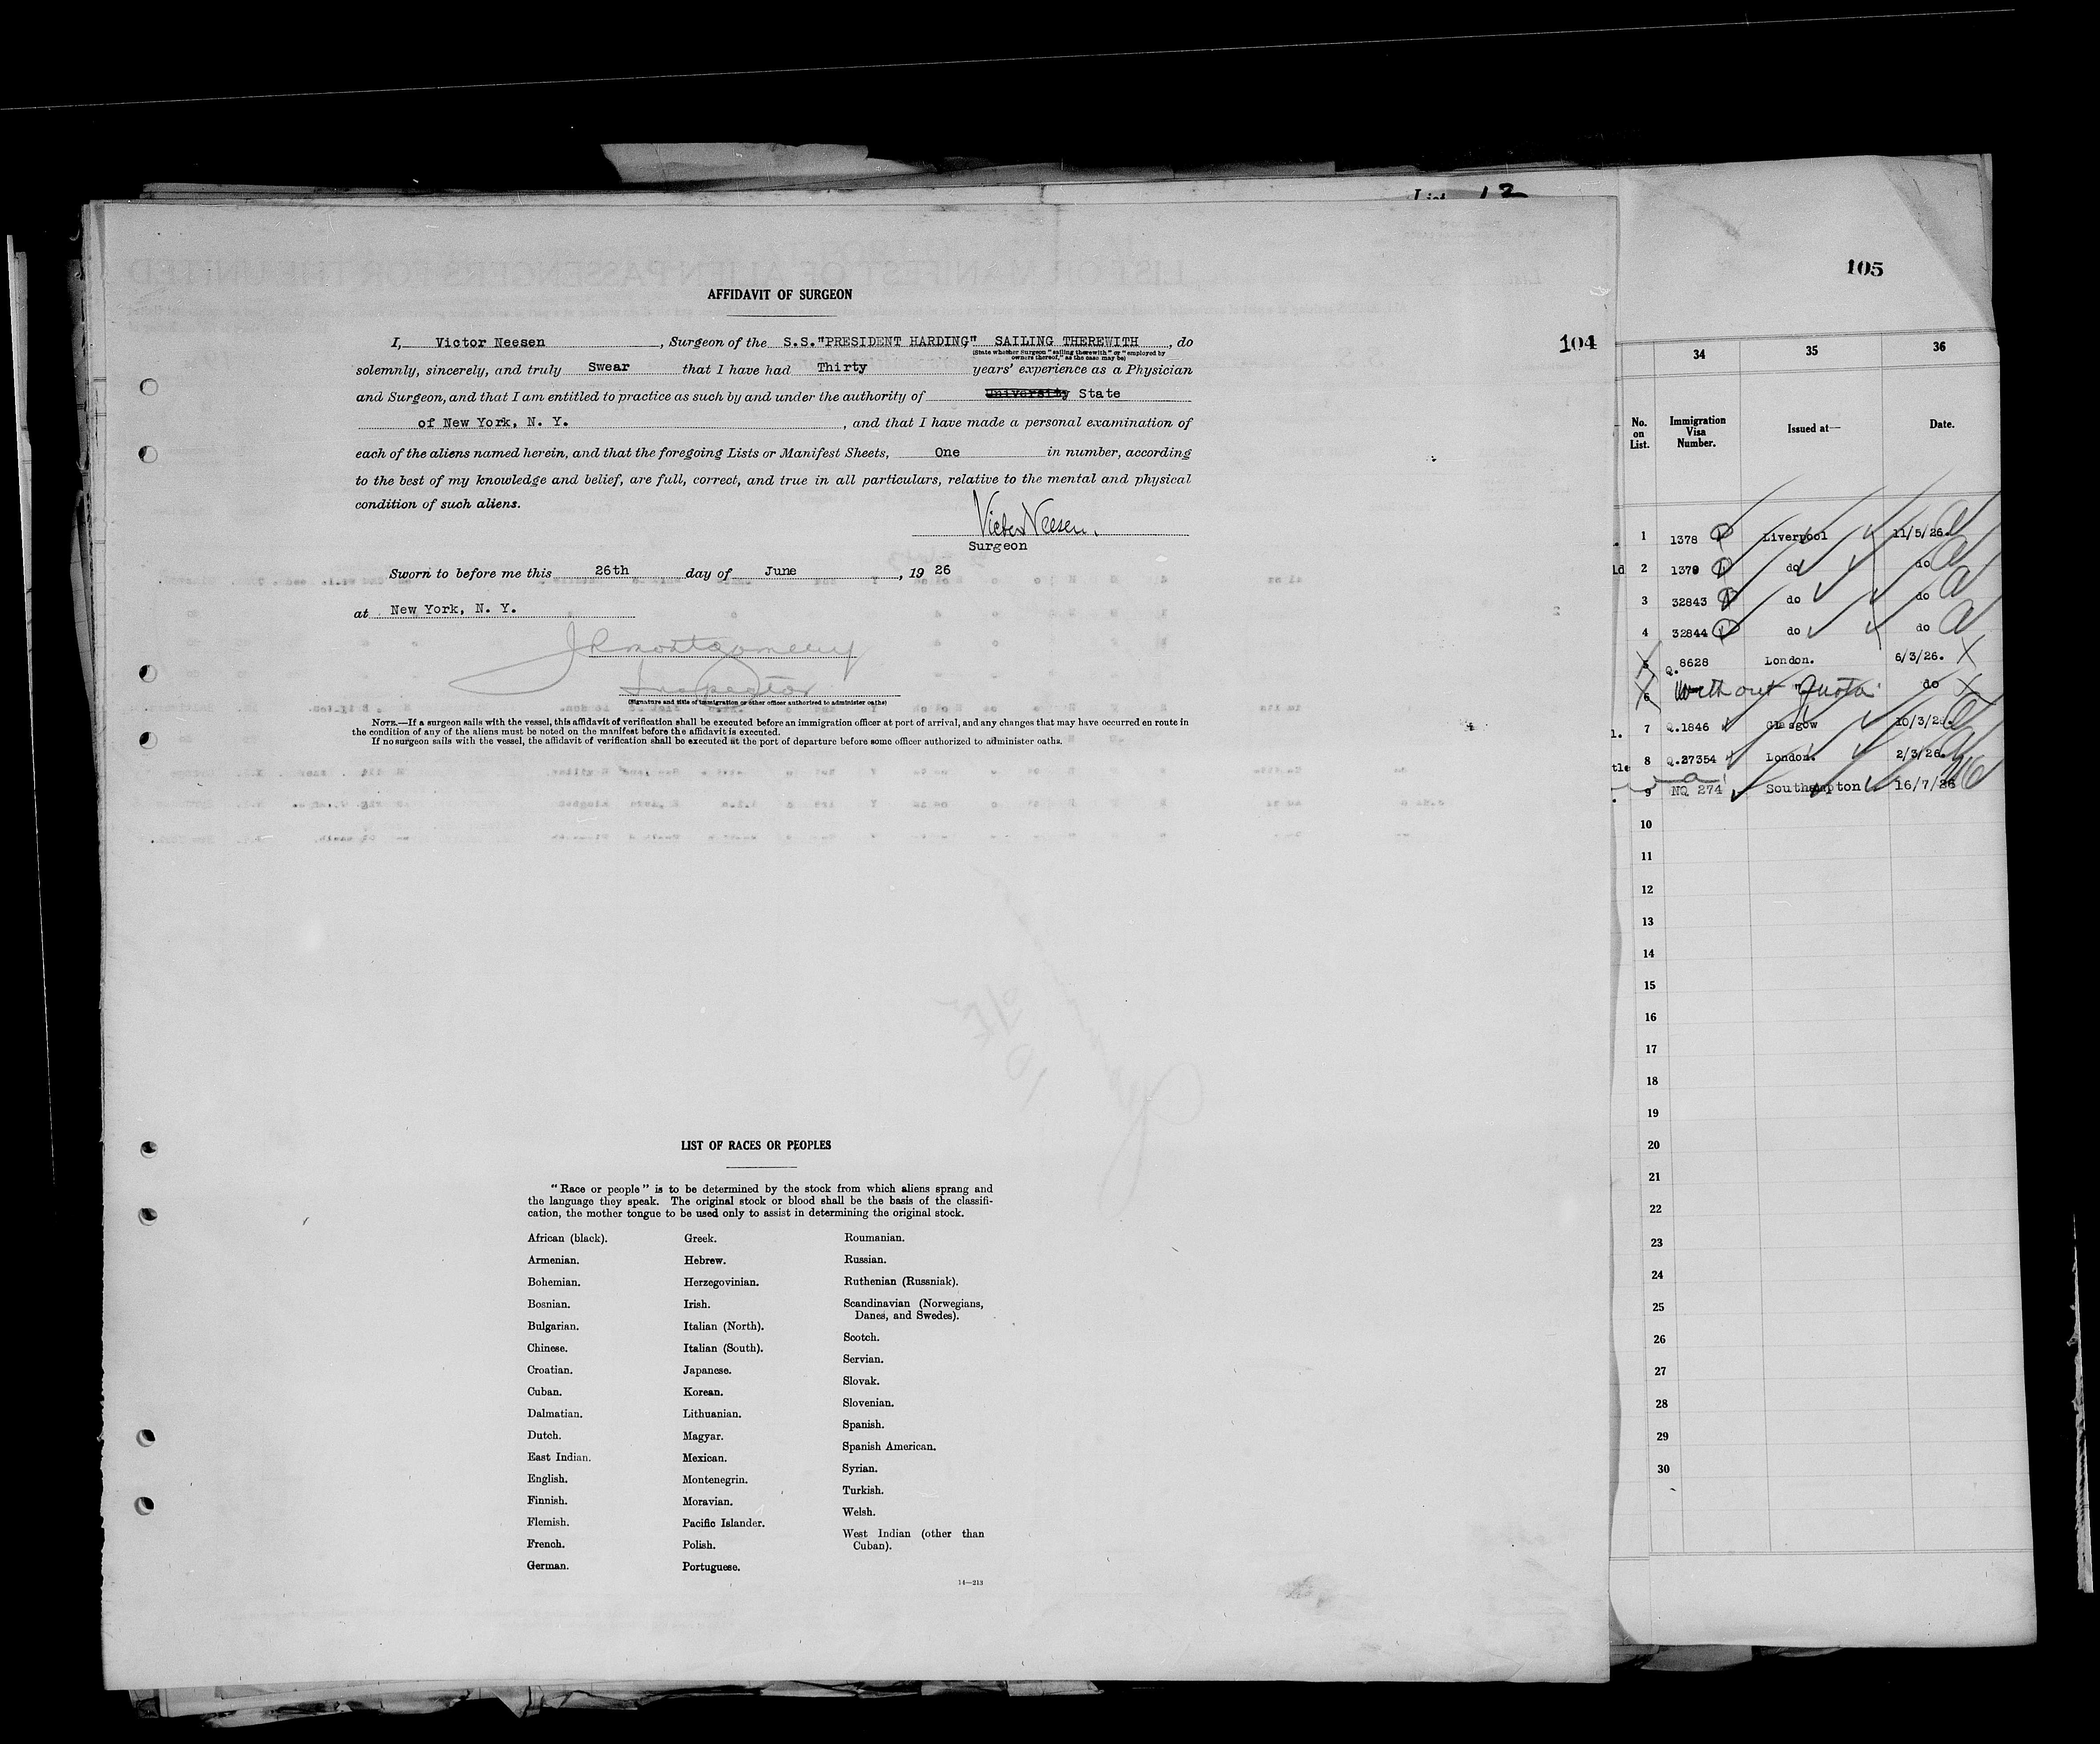 List 12
AFFIDAVIT OF SURGEON
104
I, Victor Neesen, Surgeon of the S.S."PRESIDENT HARDING" SAILING THEREWITH, do
(State whether Surgeon "sailing therewith" or "employed by
owners thereof," as the case may be)
solemnly, sincerely, and truly Swear that I have had Thirty years' experience as a Physician
and Surgeon, and that I am entitled to practice as such by and under the authority of University State
of New York, N. Y., and that I have made a personal examination of
each of the aliens named herein, and that the foregoing Lists or Manifest Sheets, One in number, according
to the best of my knowledge and belief, are full, correct, and true in all particulars, relative to the mental and physical
condition of such aliens.
Victor Neesen.
Surgeon
Sworn to before me this 26th day of June, 19 26
at New York, N. Y.
J R Montgomery
Inspector
(Signature and title of immigration or other officer authorized to administer oaths)
NOTE.—If a surgeon sails with the vessel, this affidavit of verification shall be executed before an immigration officer at port of arrival, and any changes that may have occurred en route in
the condition of any of the aliens must be noted on the manifest before the affidavit is executed.
If no surgeon sails with the vessel, the affidavit of verification shall be executed at the port of departure before some officer authorized to administer oaths.
LIST OF RACES OR PEOPLES
"Race or people" is to be determined by the stock from which aliens sprang and
the language they speak. The original stock or blood shall be the basis of the classifi-
cation, the mother tongue to be used only to assist in determining the original stock.
African (black).
Armenian.
Bohemian.
Bosnian.
Bulgarian.
Chinese.
Croatian.
Cuban.
Dalmatian.
Dutch.
East Indian.
English.
Finnish.
Flemish.
French.
German.
Greek.
Hebrew.
Herzegovinian.
Irish.
Italian (North).
Italian (South).
Japanese.
Korean.
Lithuanian.
Magyar.
Mexican.
Montenegrin.
Moravian.
Pacific Islander.
Polish.
Portuguese.
Roumanian.
Russian.
Ruthenian (Russniak).
Scandinavian (Norwegians,
Danes, and Swedes).
Scotch.
Servian.
Slovak.
Slovenian.
Spanish.
Spanish American.
Syrian.
Turkish.
Welsh.
West Indian (other than
Cuban).
14—213
105
34 35 36
No. on List. Immigration Visa Number. Issued at— Date.
1 1378 P Liverpool 11/5/26.
2 1379 P do do
3 32843 P do do
4 32844 P do do
5 Q.8628 London. 6/3/26. X
6 Without "Quota" do X
7 Q.1846 Glasgow 10/3/26.
8 Q.27354 London. 2/3/26.
9 NQ 274 Southampton 16/7/26
10
11
12
13
14
15
16
17
18
19
20
21
22
23
24
25
26
27
28
29
30